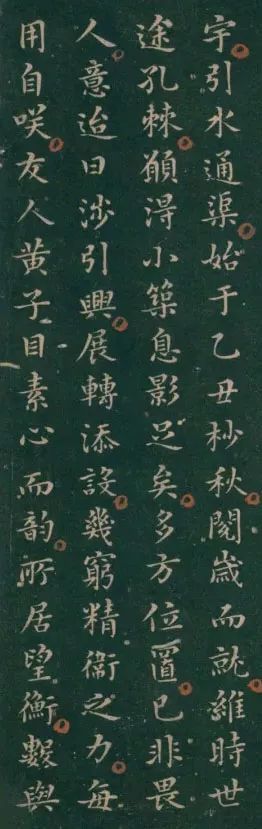 宇引水通渠始于乙丑杪秋閱歲而就雖時世
途孔棘願淂小築息影足矣多方位置已非畏
人意迨日涉引興展轉添設幾窮精衛之力每
用自咲友人黄子目素心而韵所居望衡數與